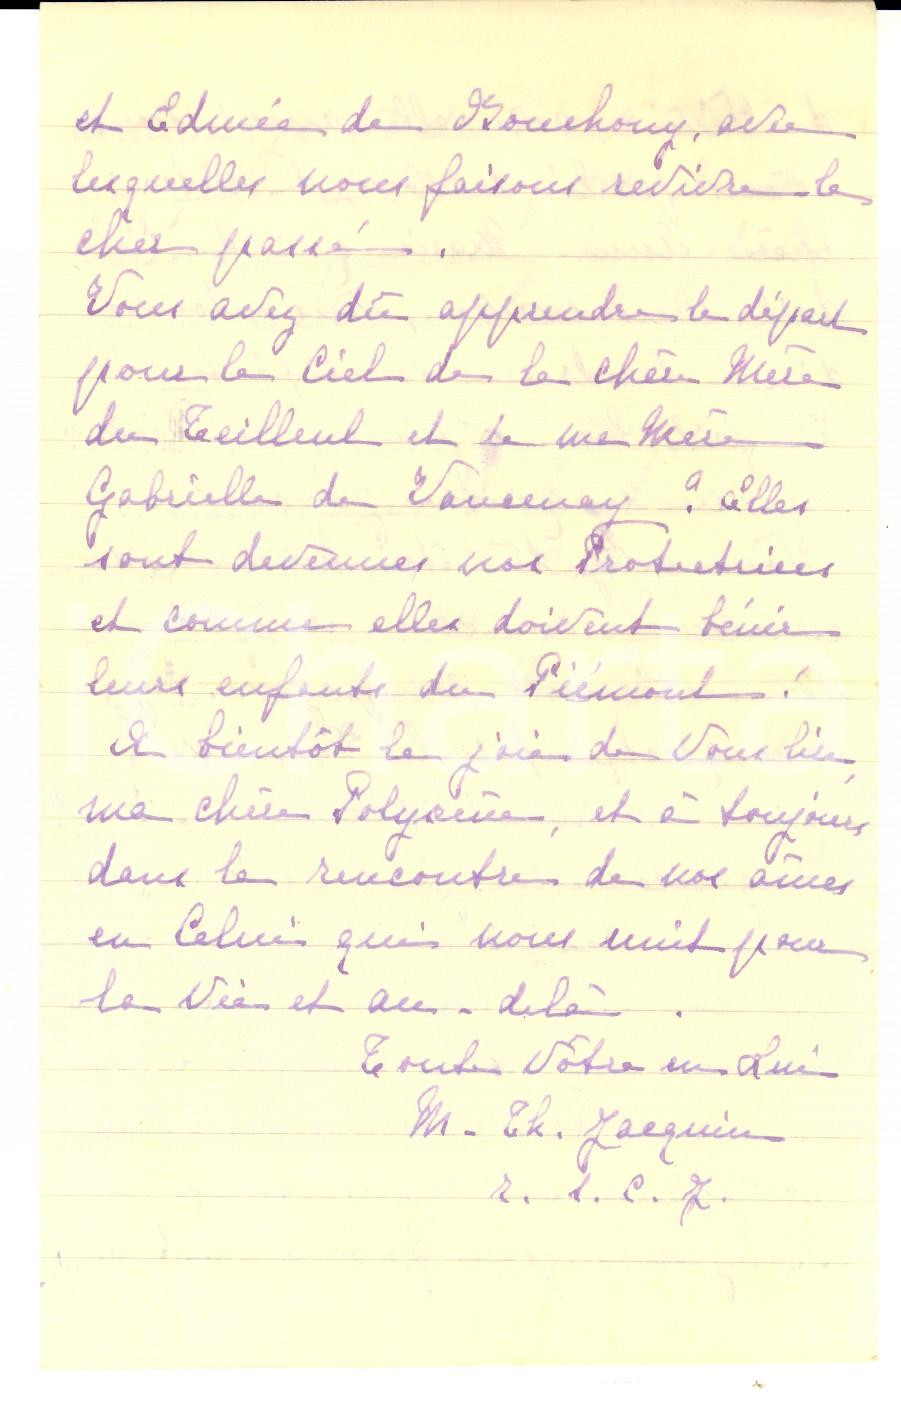 et Edmée de Bouchony, avec
lesquelles nous faisons revivre le
cher passé.
Vous avez dû apprendre le départ
pour le Ciel de la chère Mère
du Teilleul et de ma Mère
Gabrielle de Vaucenay ? Elles
sont devenues nos Protectrices
et comme elles doivent bénir
leurs enfants du Piémont !
A bientôt la joie de vous lire,
ma chère Polyxène, et à toujours
dans la rencontre de nos âmes
en Celui qui nous unit pour
la Vie et au-delà.
Toute Vôtre en Lui
M. Th. Jacquin
r. s. c. J.